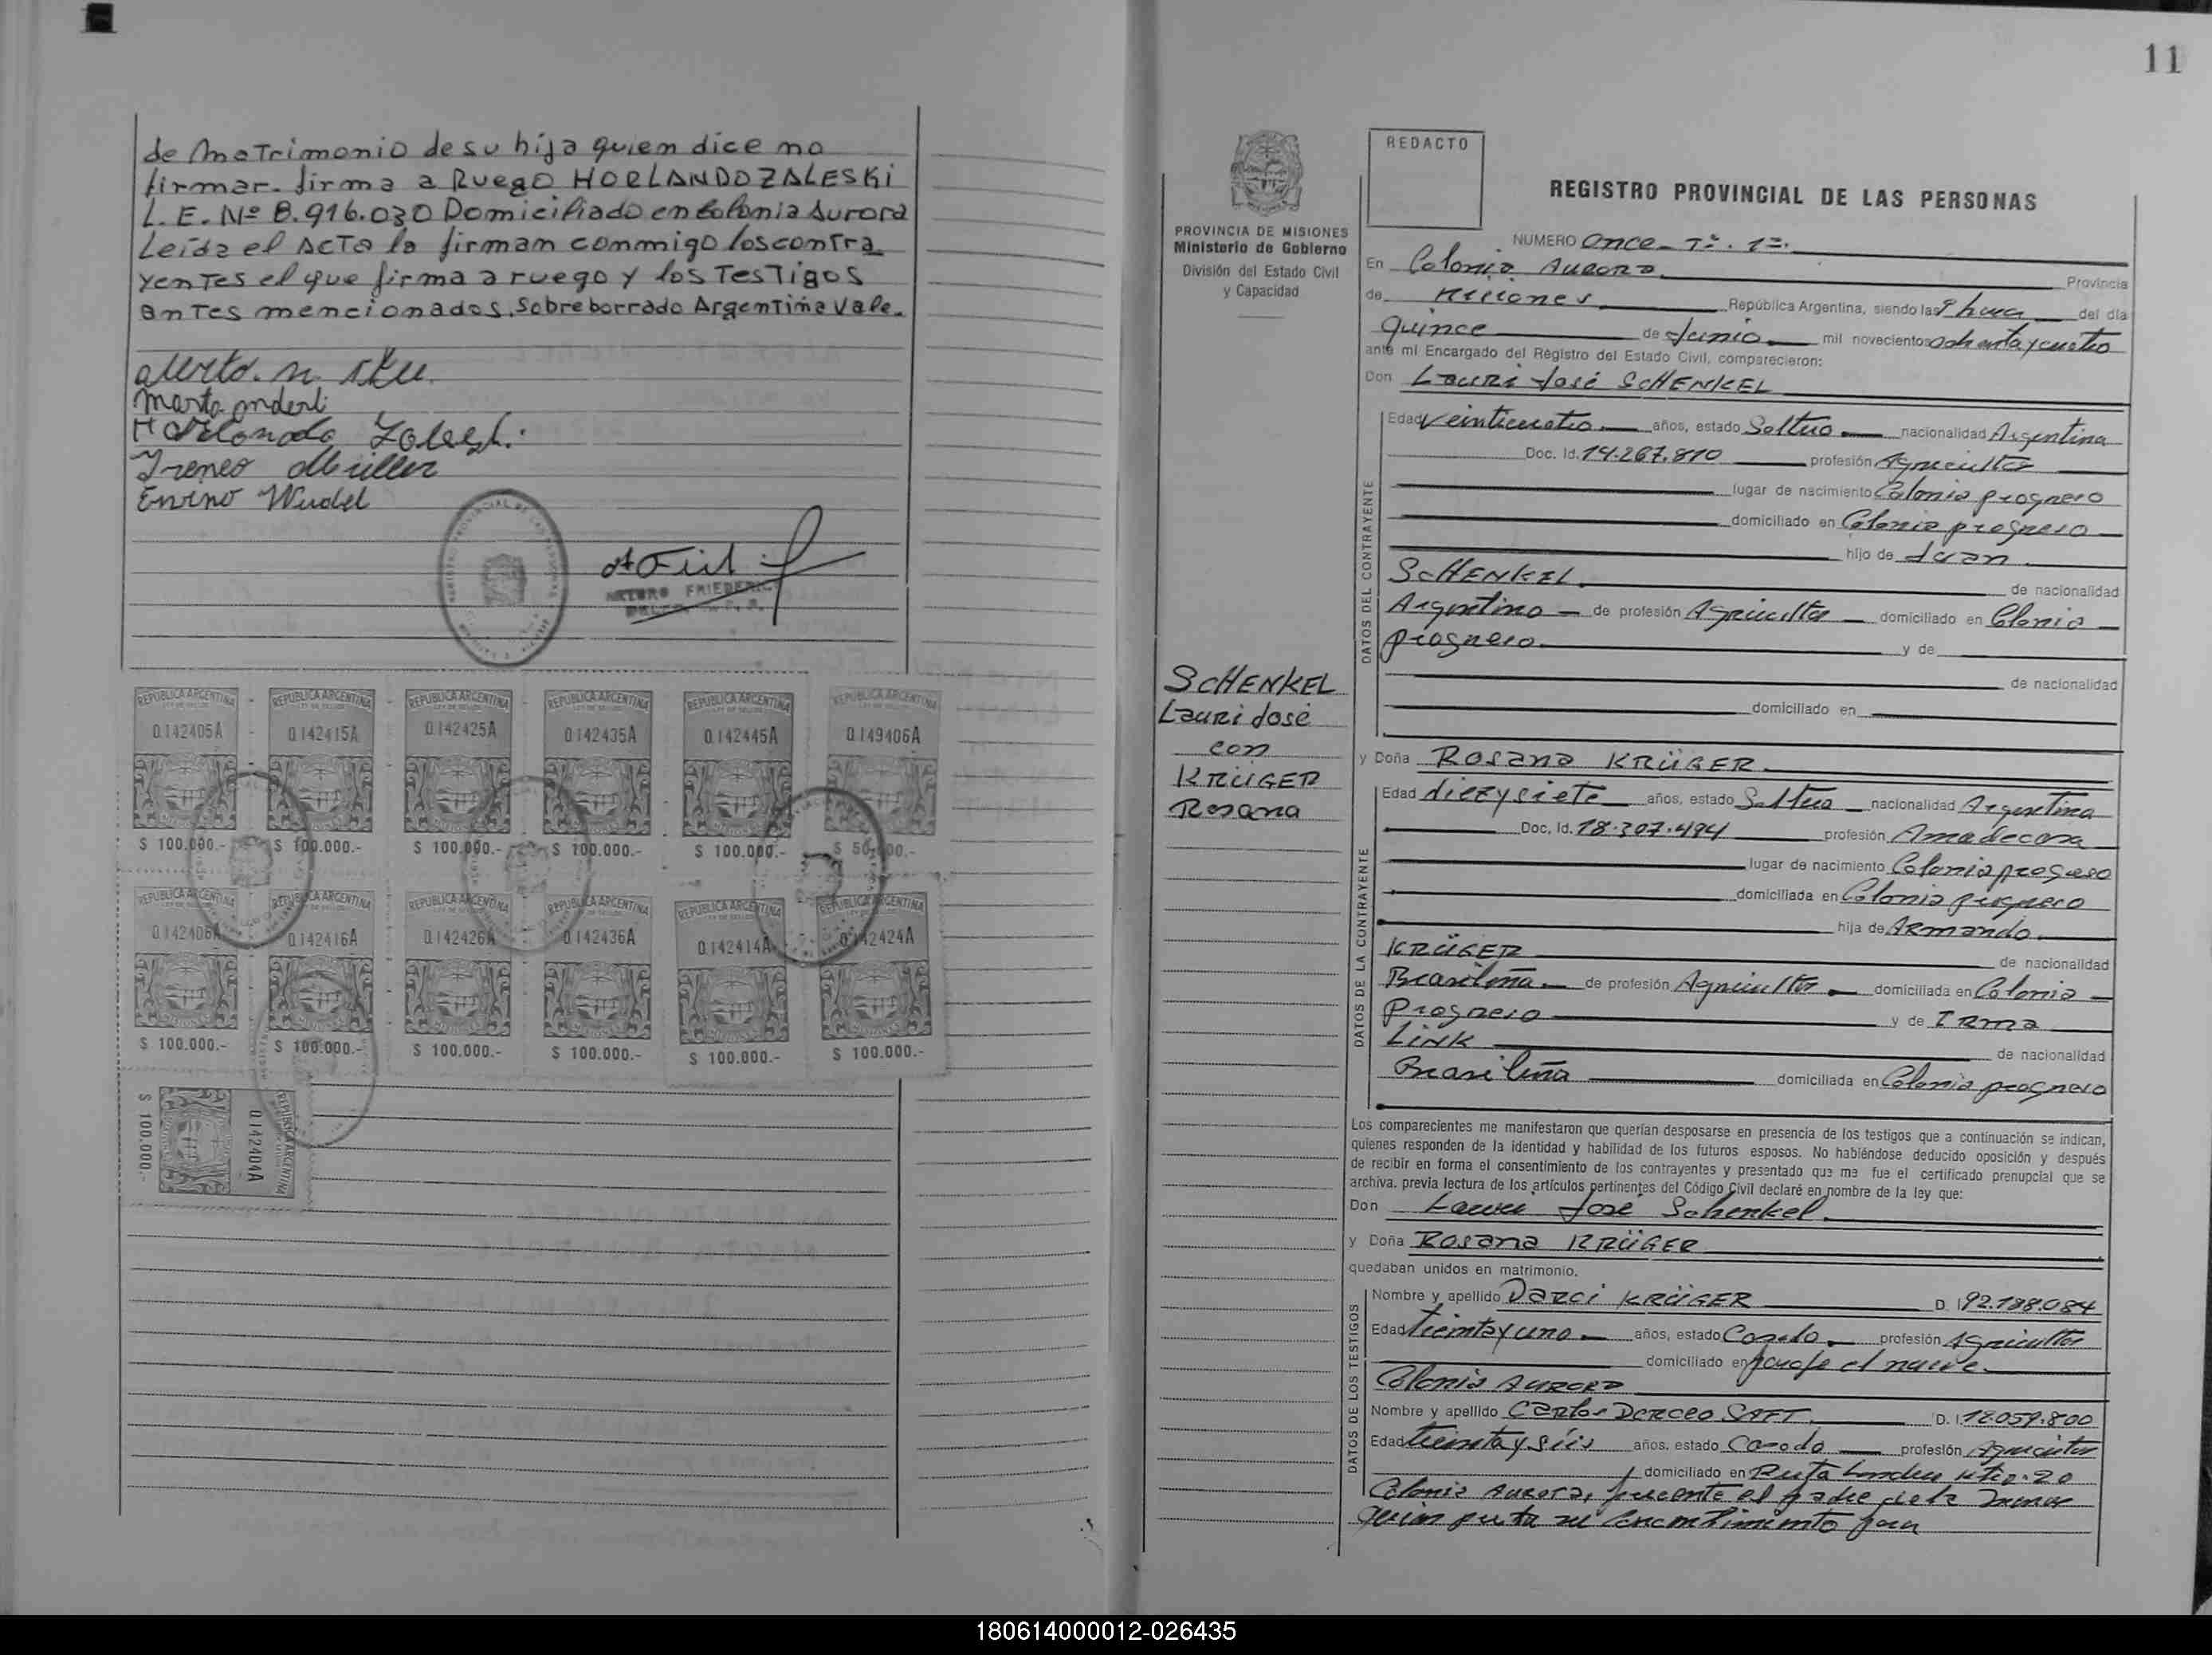 de Matrimonio de su hija quien dice no
firmar. firma a Ruego HORLANDO ZALESKI
L.E. Nº 8.916.030 Domiciliado en Colonia Aurora
Leida el Acta la firman conmmigo los contra
yentes el que firma a ruego y los Testigos
antes mencionados. Sobreborrado Argentina vale.
Marta
Ireneo Müller
ARTURO FRIEDERIC
REPUBLICA ARGENTINA REPUBLICA ARGENTINA REPUBLICA ARGENTINA REPUBLICA ARGENTINA REPUBLICA ARGENTINA REPUBLICA ARGENTINA
0.142405A 0.142415A 0.142425A 0.142435A 0.142445A 0.149406A
$ 100.000.- $ 100.000.- $ 100.000.- $ 100.000.- $ 100.000.- $ 50.000.-
REPUBLICA ARGENTINA REPUBLICA ARGENTINA REPUBLICA ARGENTINA REPUBLICA ARGENTINA REPUBLICA ARGENTINA REPUBLICA ARGENTINA
0.142406A 0.142416A 0.142426A 0.142436A 0.142414A 0.142424A
$ 100.000.- $ 100.000.- $ 100.000.- $ 100.000.- $ 100.000.- $ 100.000.-
REPUBLICA ARGENTINA
0.142404A
$ 100.000.-
11
PROVINCIA DE MISIONES
Ministerio de Gobierno
División del Estado Civil
y Capacidad
SCHENKEL
Lauri José
con
KRÜGER
Rosana
REDACTO
REGISTRO PROVINCIAL DE LAS PERSONAS
NUMERO Once - Tº. 1º.
En Colonia Aurora Provincia
de Misiones República Argentina, siendo las 9 horas del día
quince de Junio mil novecientos ochenta y cuatro
ante mi Encargado del Registro del Estado Civil, comparecieron:
Don Lauri José SCHENKEL
DATOS DEL CONTRAYENTE
Edad Veinticuatro años, estado Soltero nacionalidad Argentina
Doc. Id. 14.267.810 profesión Agricultor
lugar de nacimiento Colonia progreso
domiciliado en Colonia progreso
hijo de Juan
SCHENKEL de nacionalidad
Argentino de profesión Agricultor domiciliado en Colonia
progreso y de
de nacionalidad
domiciliado en
y Doña Rosana KRÜGER
DATOS DE LA CONTRAYENTE
Edad diezysiete años, estado Soltera nacionalidad Argentina
Doc. Id. 18.307.494 profesión Ama de casa
lugar de nacimiento Colonia progreso
domiciliada en Colonia progreso
hija de Armando
KRÜGER de nacionalidad
Brasileña de profesión Agricultor domiciliada en Colonia
Progreso y de IRma
Link de nacionalidad
Brasileña domiciliada en Colonia progreso
Los comparecientes me manifestaron que querían desposarse en presencia de los testigos que a continuación se indican,
quienes responden de la identidad y habilidad de los futuros esposos. No habiéndose deducido oposición y después
de recibir en forma el consentimiento de los contrayentes y presentado que me fue el certificado prenupcial que se
archiva, previa lectura de los artículos pertinentes del Código Civil declaré en nombre de la ley que:
Don Lauri José Schenkel
y Doña Rosana KRÜGER
quedaban unidos en matrimonio.
DATOS DE LOS TESTIGOS
Nombre y apellido Darci KRÜGER D. I. 92.188.084
Edad treinta y uno años, estado Casado profesión Agricultor
domiciliado en paraje el nueve
Colonia Aurora
Nombre y apellido Carlos D. I. 12.059.800
Edad treinta y séis años, estado Casado profesión Agricultor
domiciliado en Ruta 20
Colonia Aurora, presente el padre de la menor
quien presta su consentimiento para
180614000012-026435